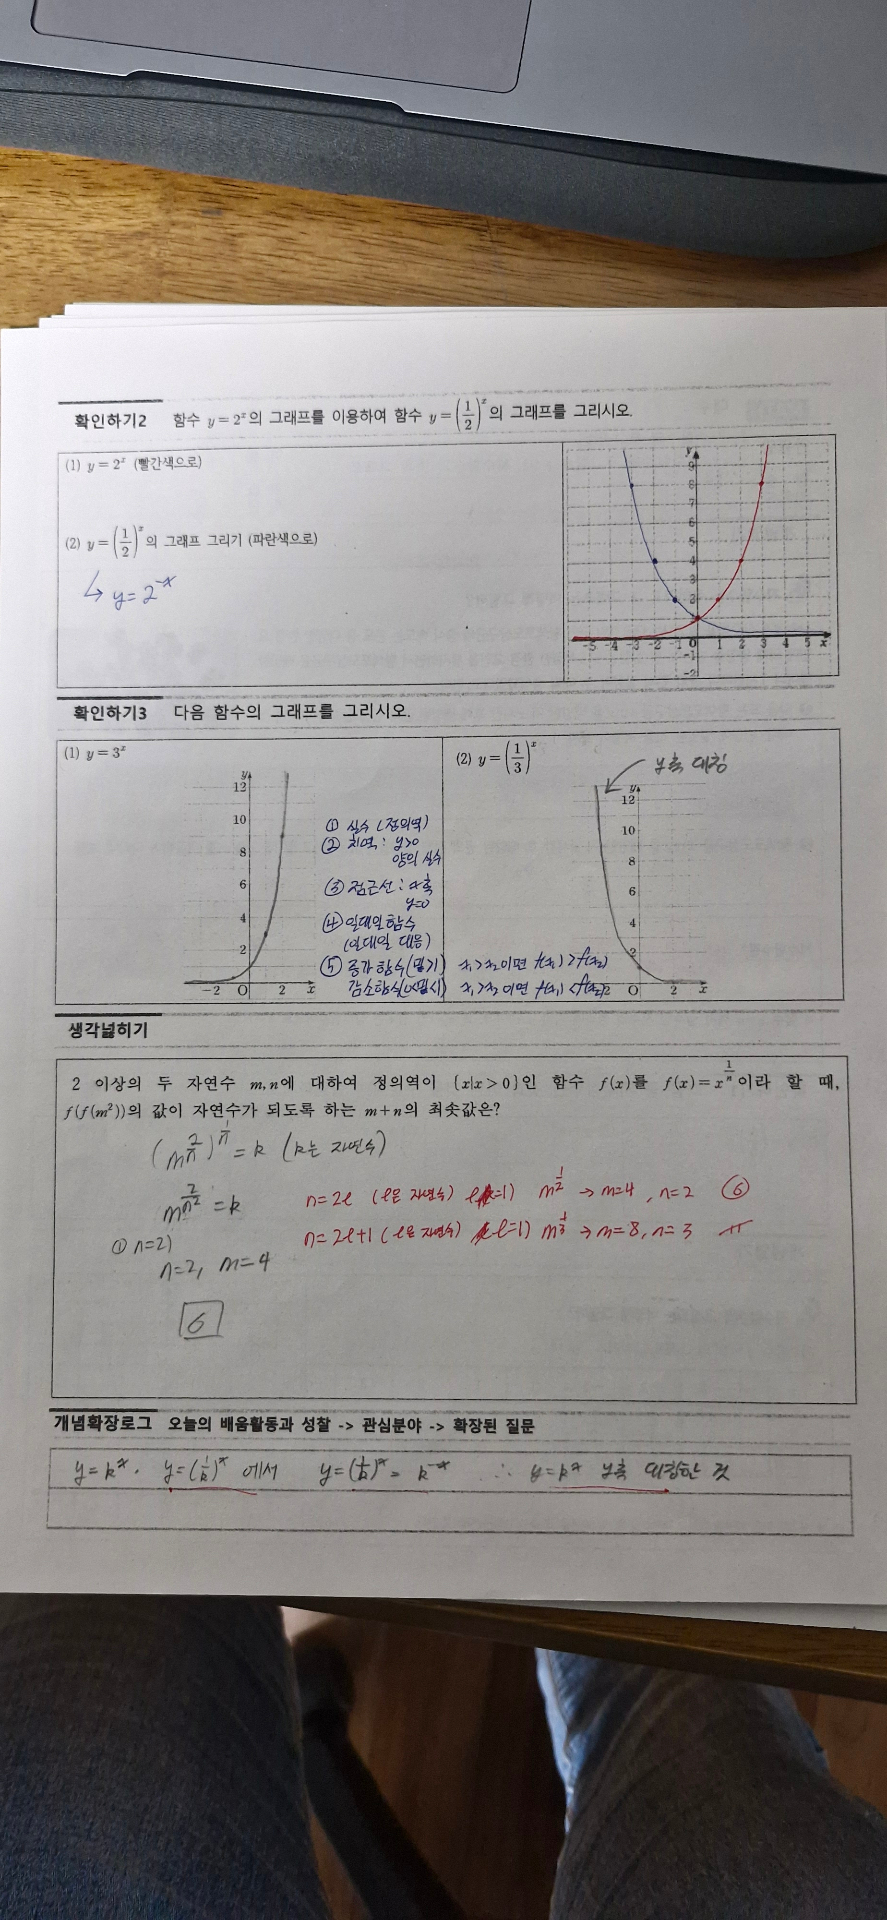 확인하기2 함수 y=2^x의 그래프를 이용하여 함수 y=(1/2)^x의 그래프를 그리시오.
(1) y=2^x (빨간색으로)
(2) y=(1/2)^x의 그래프 그리기 (파란색으로)
↳ y=2^-x
y
9
8
7
6
5
4
3
2
1
-5 -4 -3 -2 -1 0 1 2 3 4 5 x
-1
-2
확인하기3 다음 함수의 그래프를 그리시오.
(1) y=3^x
y
12
10
8
6
4
2
-2 O 2 x
① 실수 (정의역)
② 치역: y>0
양의 실수
③ 점근선: x축
y=0
④ 일대일함수
(일대일 대응)
⑤ 증가함수(밑>1) x₁>x₂이면 f(x₁)>f(x₂)
x₁>x₂이면 f(x₁)<f(x₂)
(2) y=(1/3)^x
y축 대칭
y
12
10
8
6
4
2
2 O 2 x
생각넓히기
2 이상의 두 자연수 m, n에 대하여 정의역이 {x|x>0}인 함수 f(x)를 f(x)=x^(1/n)이라 할 때,
f(f(m²))의 값이 자연수가 되도록 하는 m+n의 최솟값은?
(m^(2/n))^(1/n) = k (k는 자연수)
m^(2/n²) = k
① n=2)
n=2, m=4
6
n=2ℓ (ℓ은 자연수) ℓ=1) m^(1/2) → m=4, n=2 ⑥
n=2ℓ+1 (ℓ은 자연수) ℓ=1) m^(1/3) → m=8, n=3 11
개념확장로그 오늘의 배움활동과 성찰 -> 관심분야 -> 확장된 질문
y=k^x. y=(1/k)^x 에서 y=(1/k)^x = k^-x ∴ y=k^x y축 대칭한 것